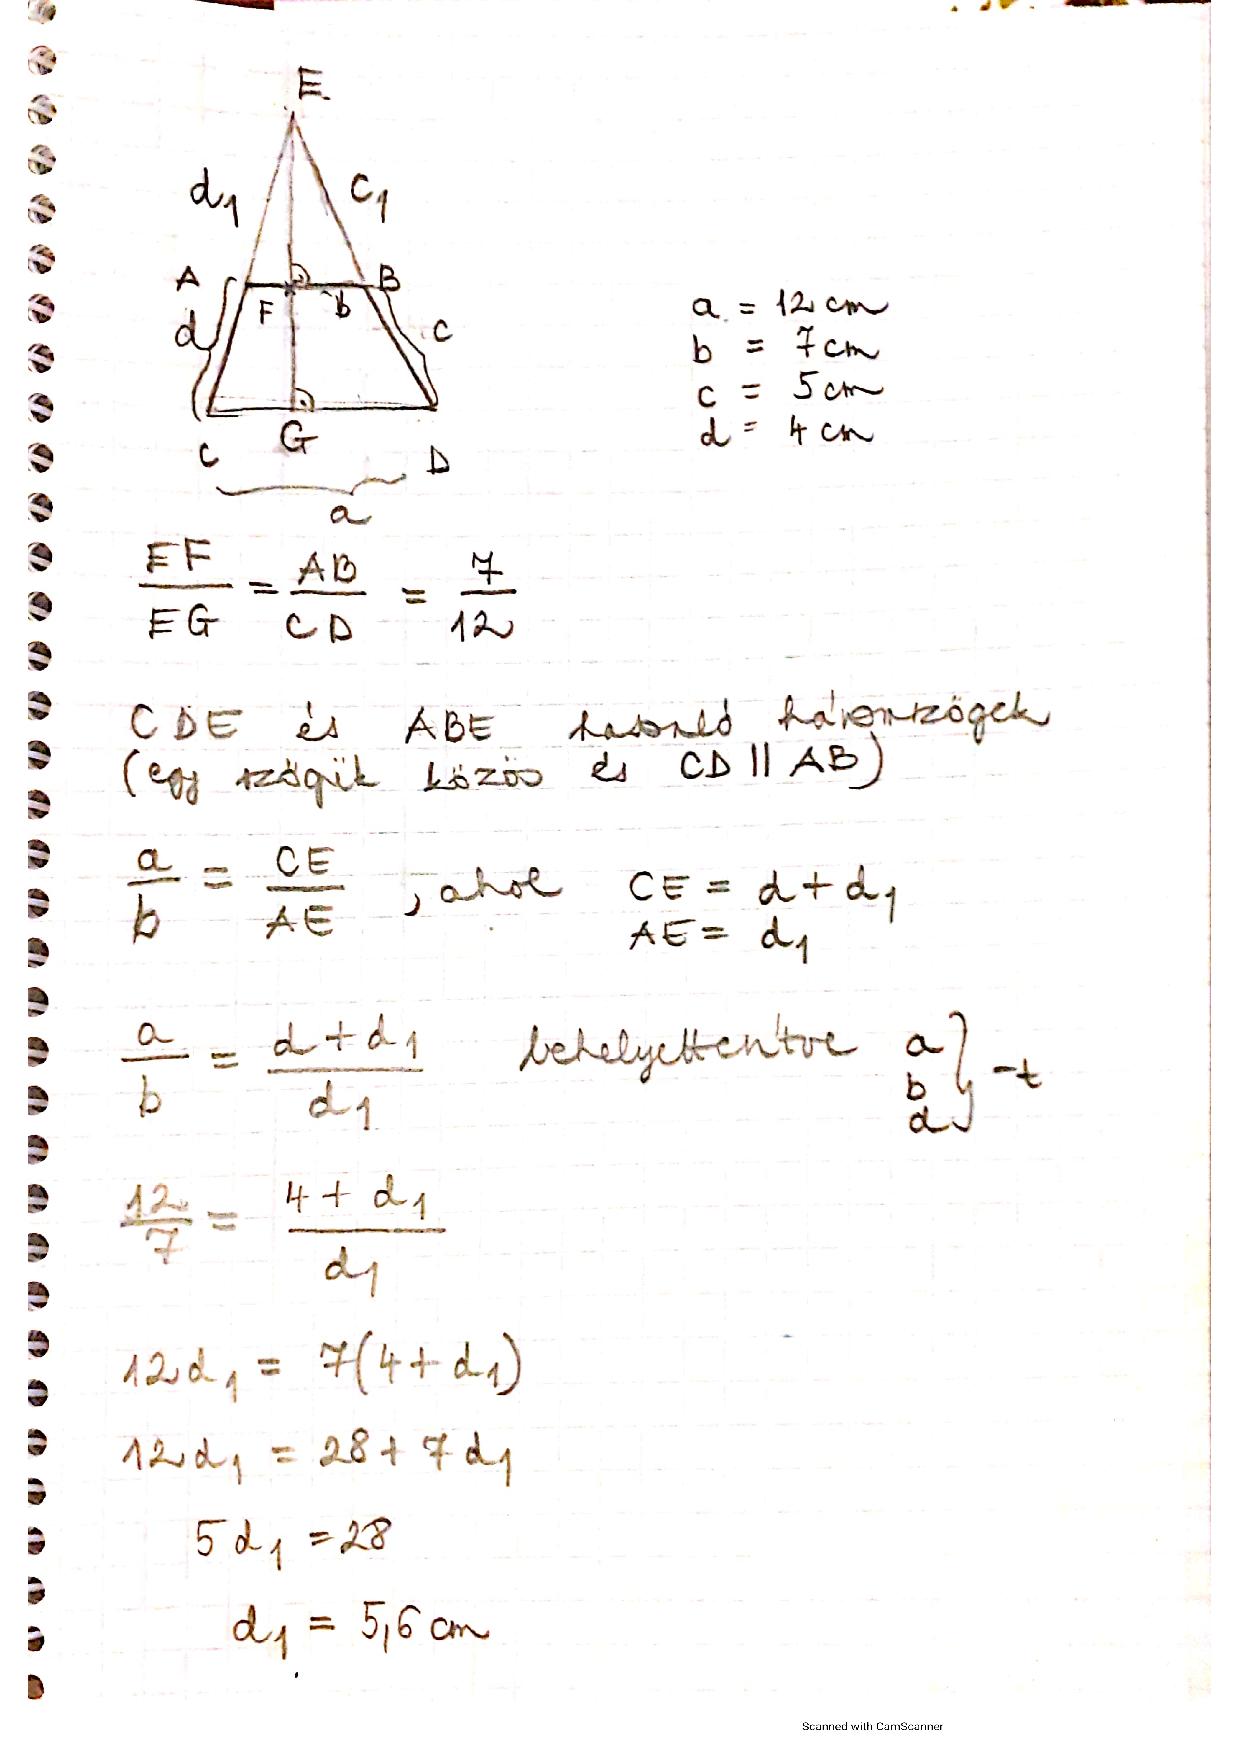 E
d₁ c₁
A B
F b
d c
C G D
a
a = 12 cm
b = 7 cm
c = 5 cm
d = 4 cm
EF/EG = AB/CD = 7/12
CDE és ABE hasonló háromszögek
(egy szögük közös és CD || AB)
a/b = CE/AE , ahol CE = d + d₁
AE = d₁
a/b = (d + d₁)/d₁ behelyettesítve a b d} -t
12/7 = (4 + d₁)/d₁
12d₁ = 7(4 + d₁)
12d₁ = 28 + 7d₁
5d₁ = 28
d₁ = 5,6 cm
Scanned with CamScanner